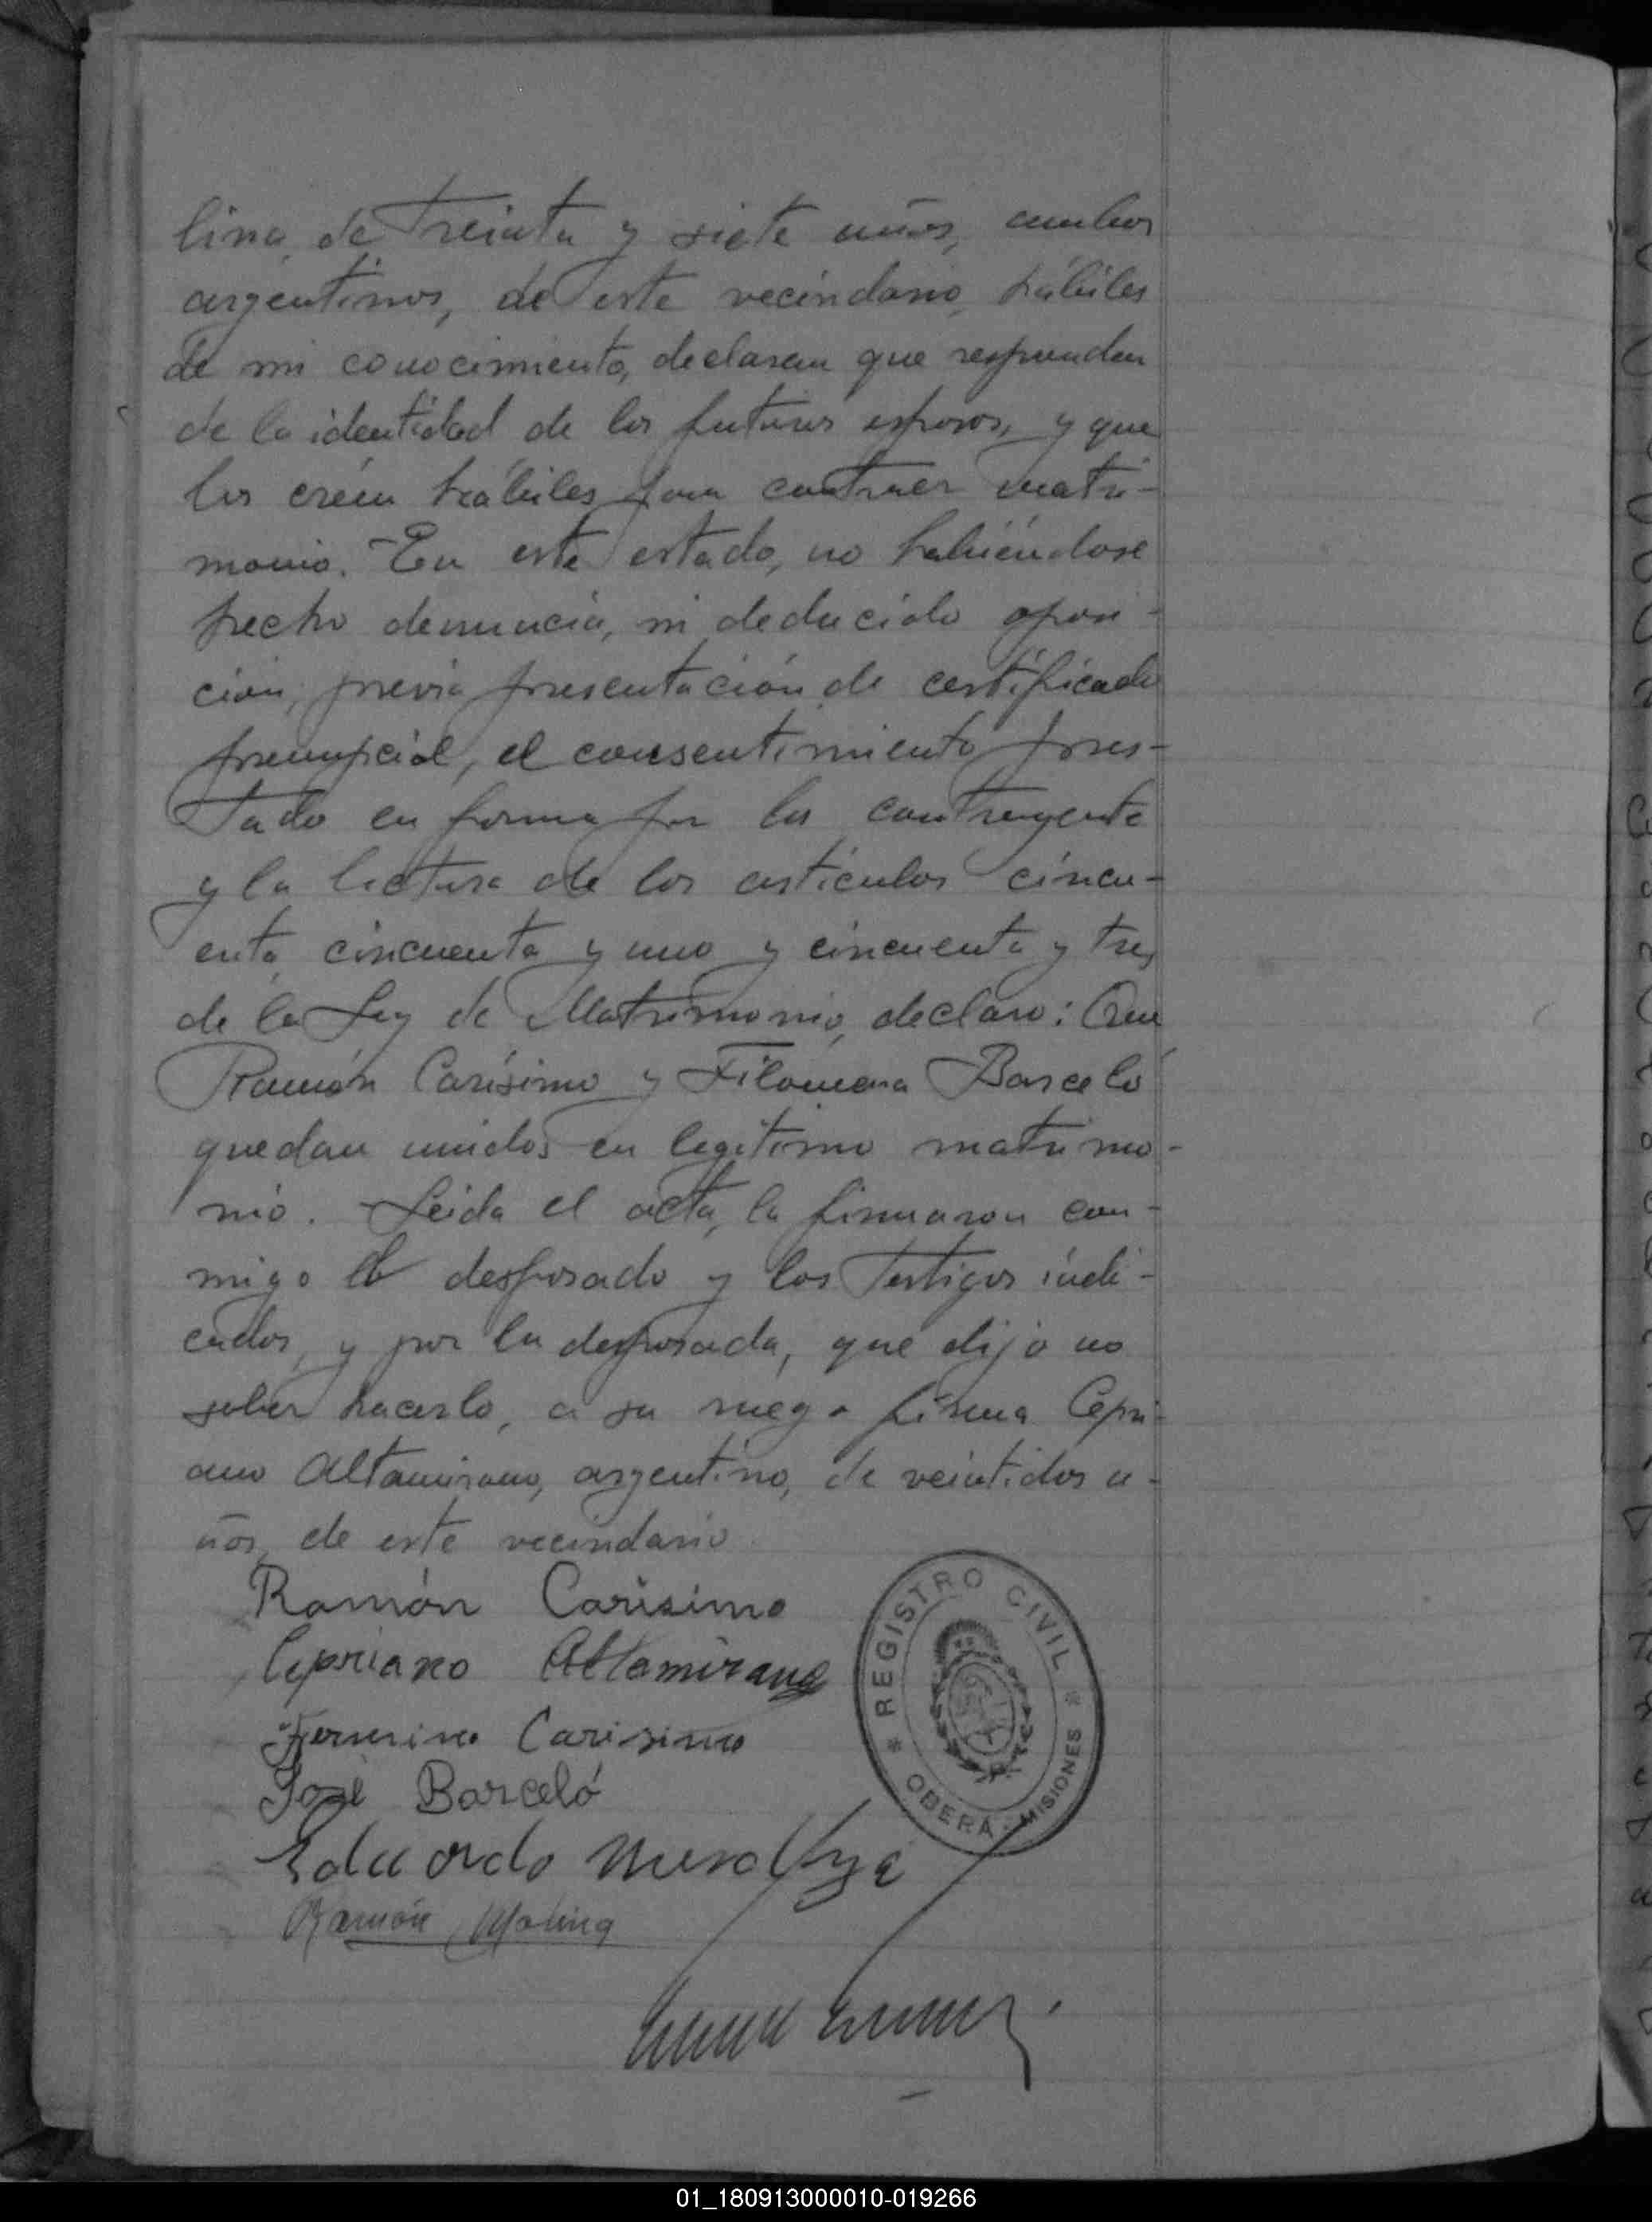 lina, de treinta y siete años, ambos
argentinos, de este vecindario, hábiles
de mi conocimiento, declaran que responden
de la identidad de los futuros esposos, y que
los créen hábiles para contraer matri-
monio. En este estado, no habiéndose
hecho denuncia, ni deducido oposi-
ción, previa presentación de certificado
prenupcial, el consentimiento pres-
tado en forma por los contrayente
y la lectura de los artículos cincu-
enta, cincuenta y uno y cincuenta y tres
de la Ley de Matrimonio, declaro: Que
Ramón Carísimo y Filomena Barceló
quedan unidos en legítimo matrimo-
nio. Leida el acta, la firmaron con-
migo el desposado y los testigos indi-
cados, y por la desposada, que dijo no
saber hacerlo, a su ruego firma Cipri-
ano Altamirano, argentino, de veintidos a-
ños, de este vecindario
Ramón Carisimo
Cipriano Altamirano
Fermino Carisimo
José Barceló
Eduardo
Ramón Molina
REGISTRO CIVIL
OBERÁ - MISIONES
01_180913000010-019266